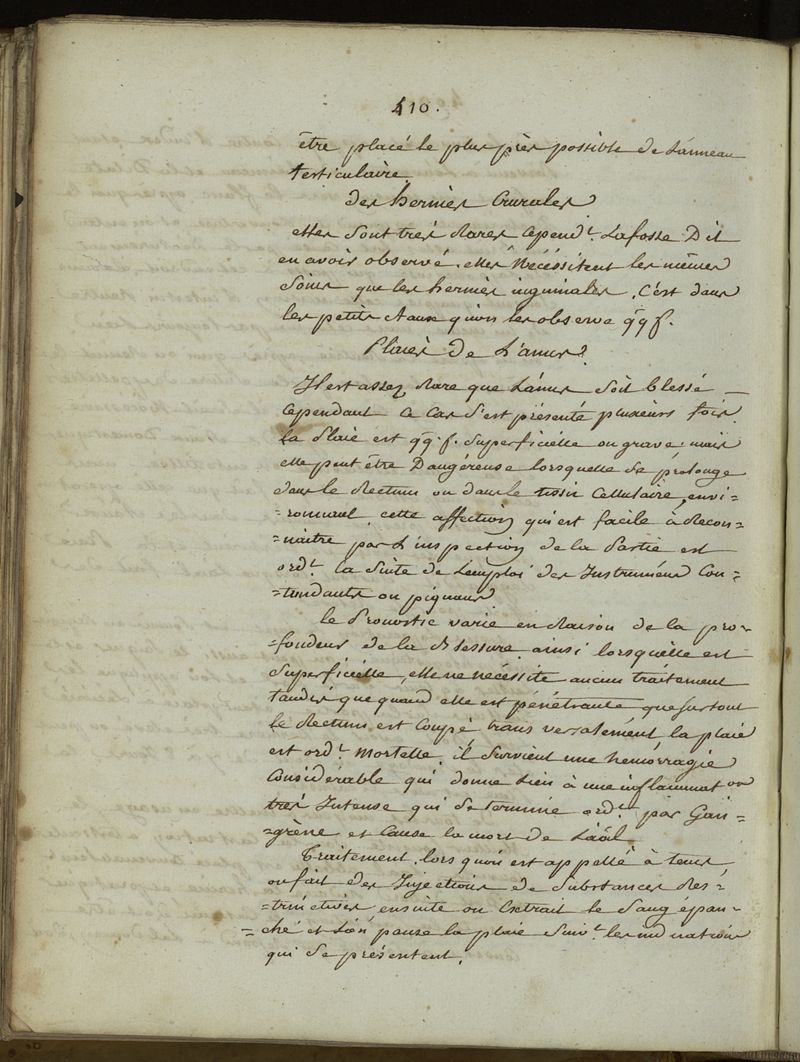 410.
être placé le plus près possible de l'anneau
testiculaire.
des hernies Crurales
elles sont très Rares cepend.t Lafosse Dit
en avoir observé. elles Nécéssitent les mêmes
soins que les hernies inguinales. C'est dans
les petits chaux qu'on les observe qq f.
Plaies de L'anus
Il est assez Rare que L'anus soit blessé
Cependant ce cas s'est présenté plusieurs fois
la Plaie est qq. f. superficielle ou grave. mais
elle peut être Dangéreuse lorsquelle se prolonge
dans le Rectum ou dans le tissu Cellulaire envi=
=ronnant. cette affection qui est facile à Recon=
=naitre par L'inspection de la Partie est
ord.t la suite de L'emploi des Instrumens Con=
=tondants ou piquans
le Pronostic varie en Raison de la pro=
=fondeur de la Blessure. ainsi lorsquelle est
superficielle, elle ne nécéssite aucun traitement
tandis que quand elle est pénétrante que surtout
le Rectum est Coupé transversalement la plaie
est ord.t Mortelle. il survient une hemorragie
Considérable qui donne lieu à une inflammat.on
très Intense qui se termine ord.t par Gan=
=grène et Cause la mort de L'a'al
Traitement. lors quon est appellé à tems
on fait des Injections de Substances Res=
=trinctives, ensuite on Extrait le Sang épan=
=ché et L'on panse la plaie Suiv.t les indications
qui se présentent.